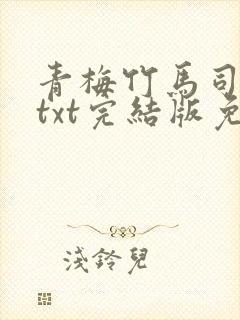 青梅竹馬司
txt完結版免
淺鈴兒